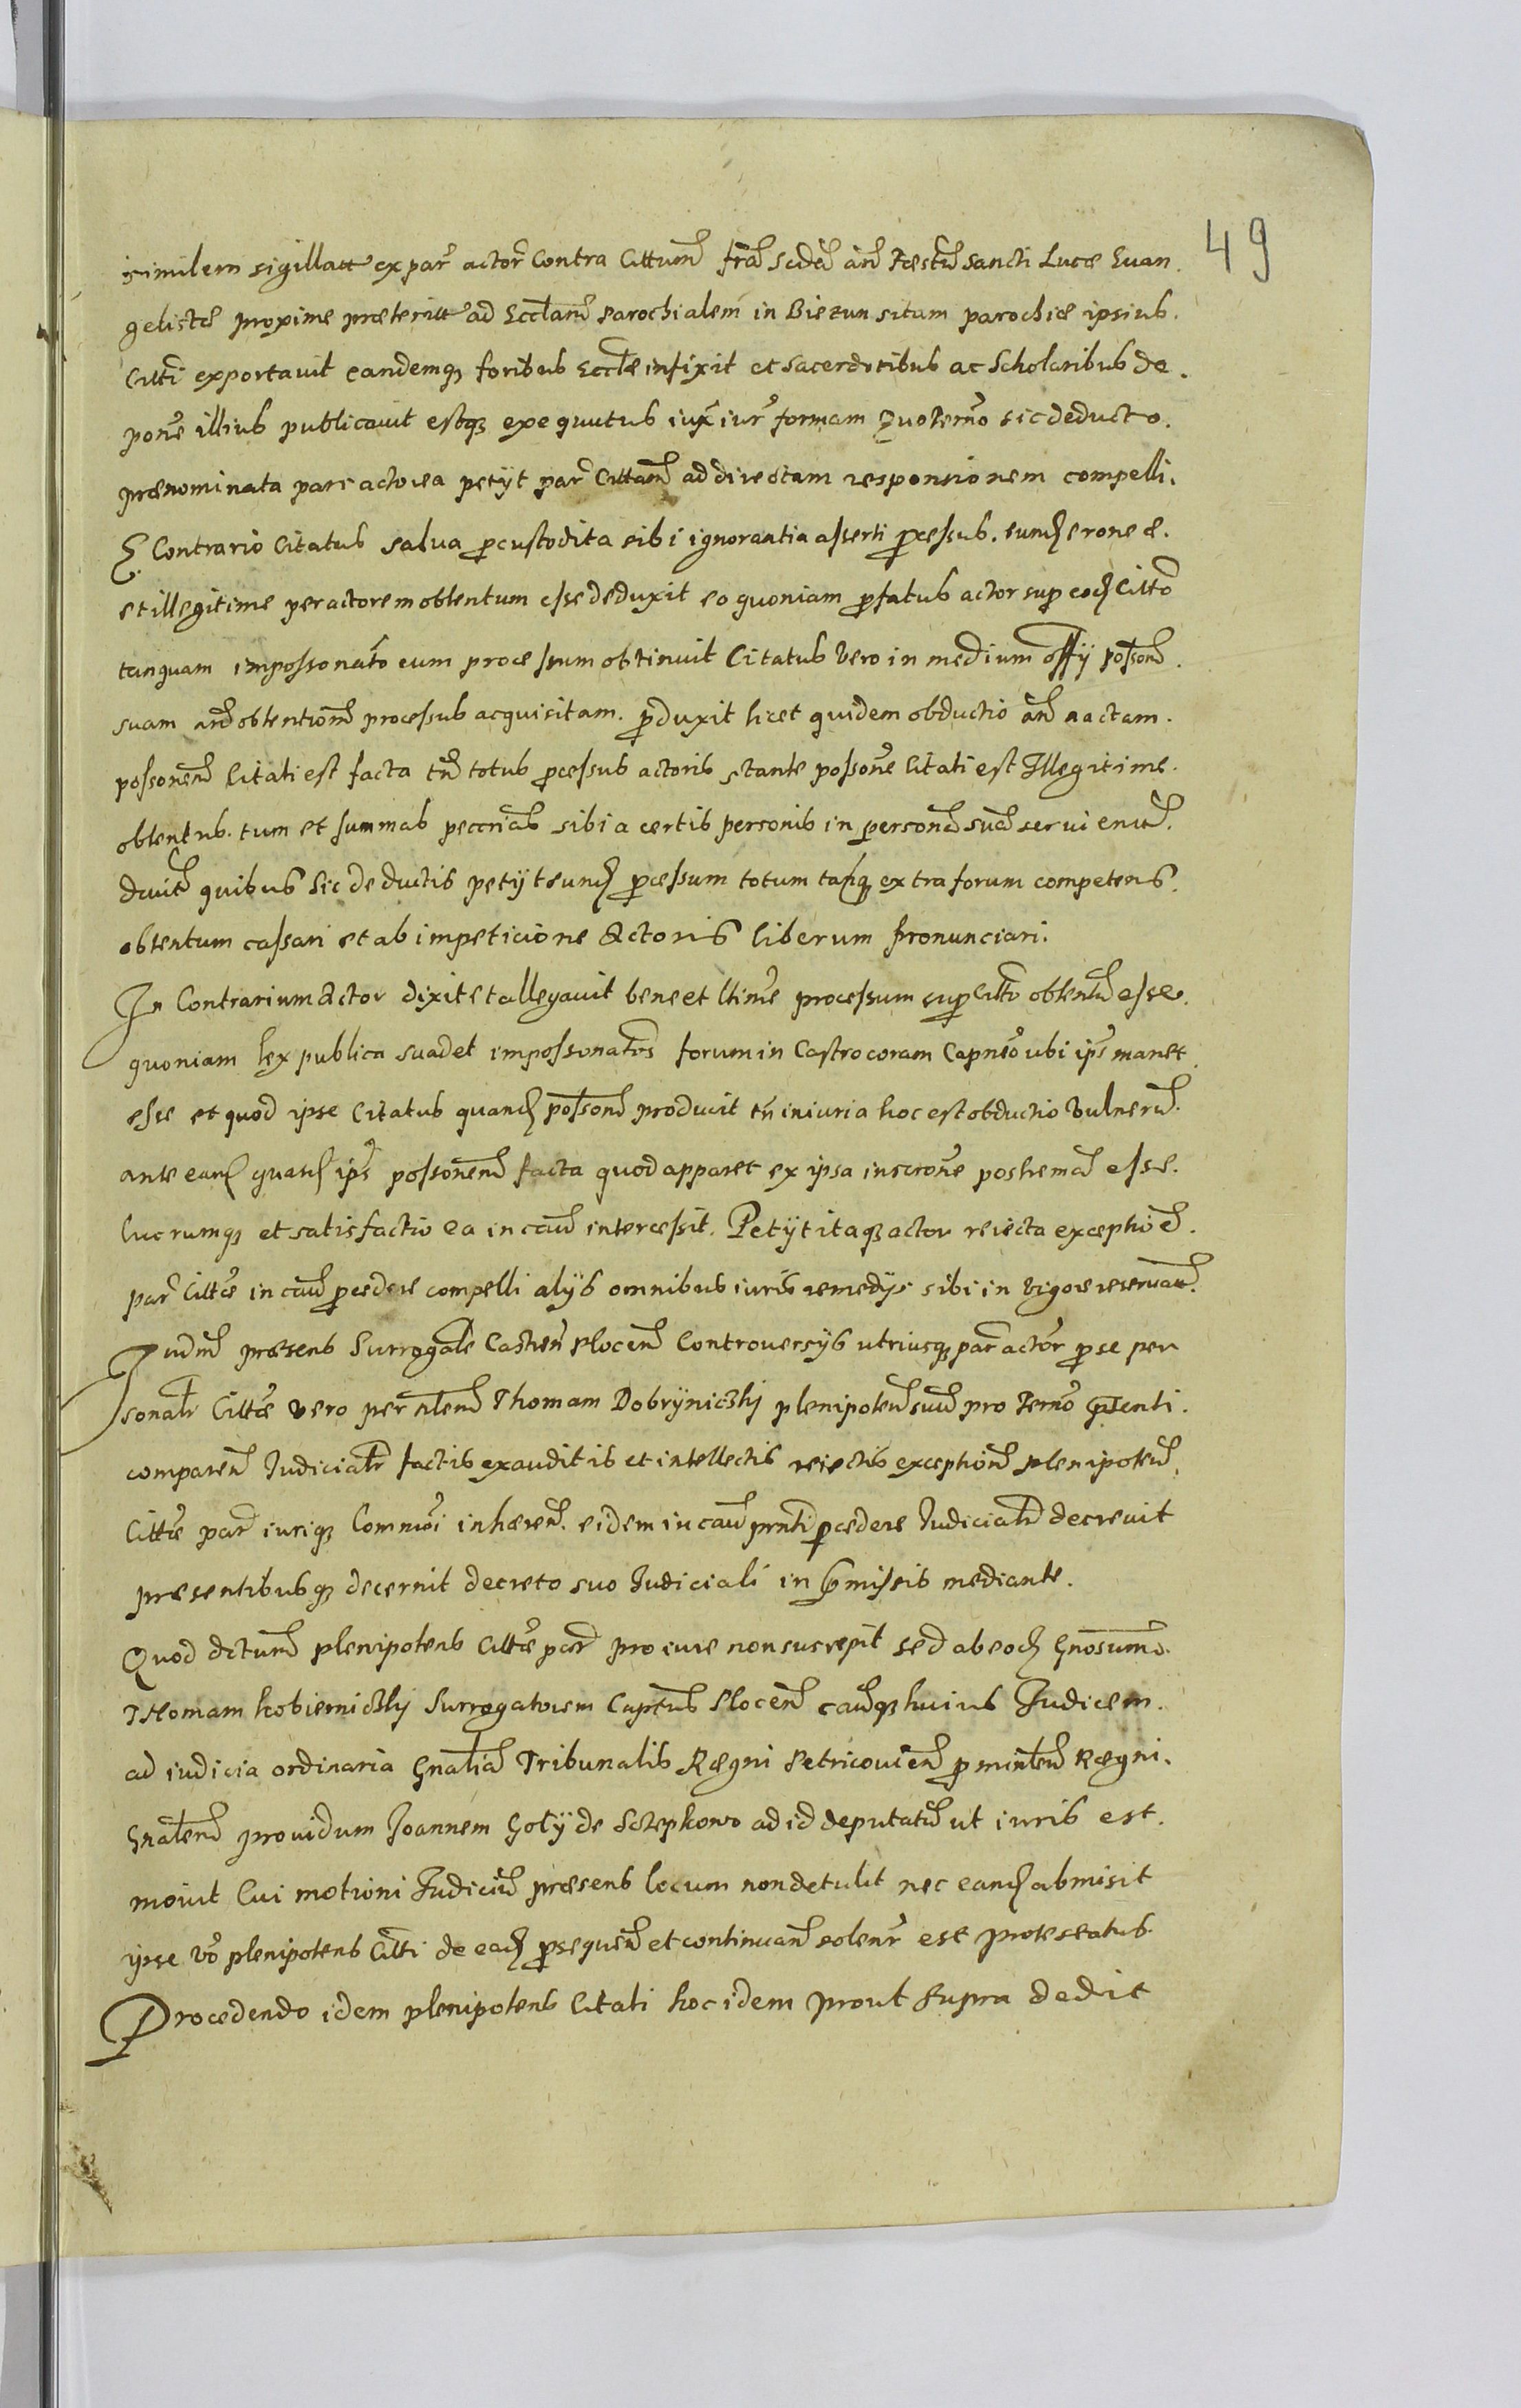 49
similem sigillatt ex par actor Contra Cittum fra Scda an Faestu Sancti Lucæ Euan
gelistæ proxime præteritt ad Ecclam Parochialem in Biezun sitam parochiæ ipsius.
Citti exportavit eandemq foribus Ecclæ infixit et sacerdotibus ac Scholaribus de.
pone illius publicauit estq exequutus iux iur formam Quo Termo sic deducto.
prænominata pars actorea petijt par Cittam ad directam responsionem compelli.
E Contrario Citatus salua pcustodita sibi ignorantia asserti pcessus. eund erroneæ.
et illegitime per actorem obtentum esse deduxit eo quoniam pfatus actor sup eod Citto
tanquam impossonato eum processum obtinuit Citatus vero in medium offij possom.
suam an obtentiom processus acquisitam. pduxit licet quidem obductio an nactam.
possonem Citati est facta tn totus pcessus actoris stante possone Citati est Illegitime.
obtentus. tum et summas peccnias sibi a certis personis in persona sua seruienti.
duit quibus sic deductis petijt eund pcessum totum tanq extra forum competens.
obtentum cassari et ab impeticione Actoris liberum pronunciari.
In Contrarium Actor dixit et allegauit bene et ltime processum sup Citto obtentu esse.
quoniam lex publica suadet impossonatos forum in Castro coram Capneo ubi ips manet
esse et quod ipse Citatus quand possom producit tn iniuria hoc est obductio vulneru.
ante eand quand ips possonem facta quod apparet ex ipsa inscrone posthema esse.
lucrumq et satisfactio ea in cau intercessit. Petijt itaq actor reiecta exceptioe.
par Cittæ in cau pcedere compelli alijs omnibus iuris remedijs sibi in vigore reseruatt.
Iudm præsens Surrogale Castren Plocen Controuersijs utriusq par actor p se per
sonatr Cittæ vero per Nlem Thomam Dobrÿnicskj plenipoten suu pro Termo Psenti.
comparen Iudiciatr factis exauditis et intellectis reiectis exceptiom plenipoten.
Cittæ par iuriq Commoi inhæren. eidem in cau prnti pcedere Iudiciatr decreuit
præsentibusq decernit decreto suo Iudiciali in Pmissis mediante.
Quod dctum plenipotens Cittæ par pro iure non suscepit sed ab eod Gnosum.
Thomam kobiernickÿ Surrogatorem Captus Plocen cauq huius Iudicem.
ad iudicia ordinaria Gnalia Tribunalis Regni Petricouien p minlem Rægni.
Gnalem prouidum Joannem Golÿ de Sczepkowo ad id deputatu ut iuris est.
mouit Cui motioni Iudiciu præsens locum non detulit nec eand admisit
ipse vo plenipotens Citti de ead psequen et continuan solenr est protestatus.
Procedendo idem plenipotens Citati hoc idem prout supra dedit